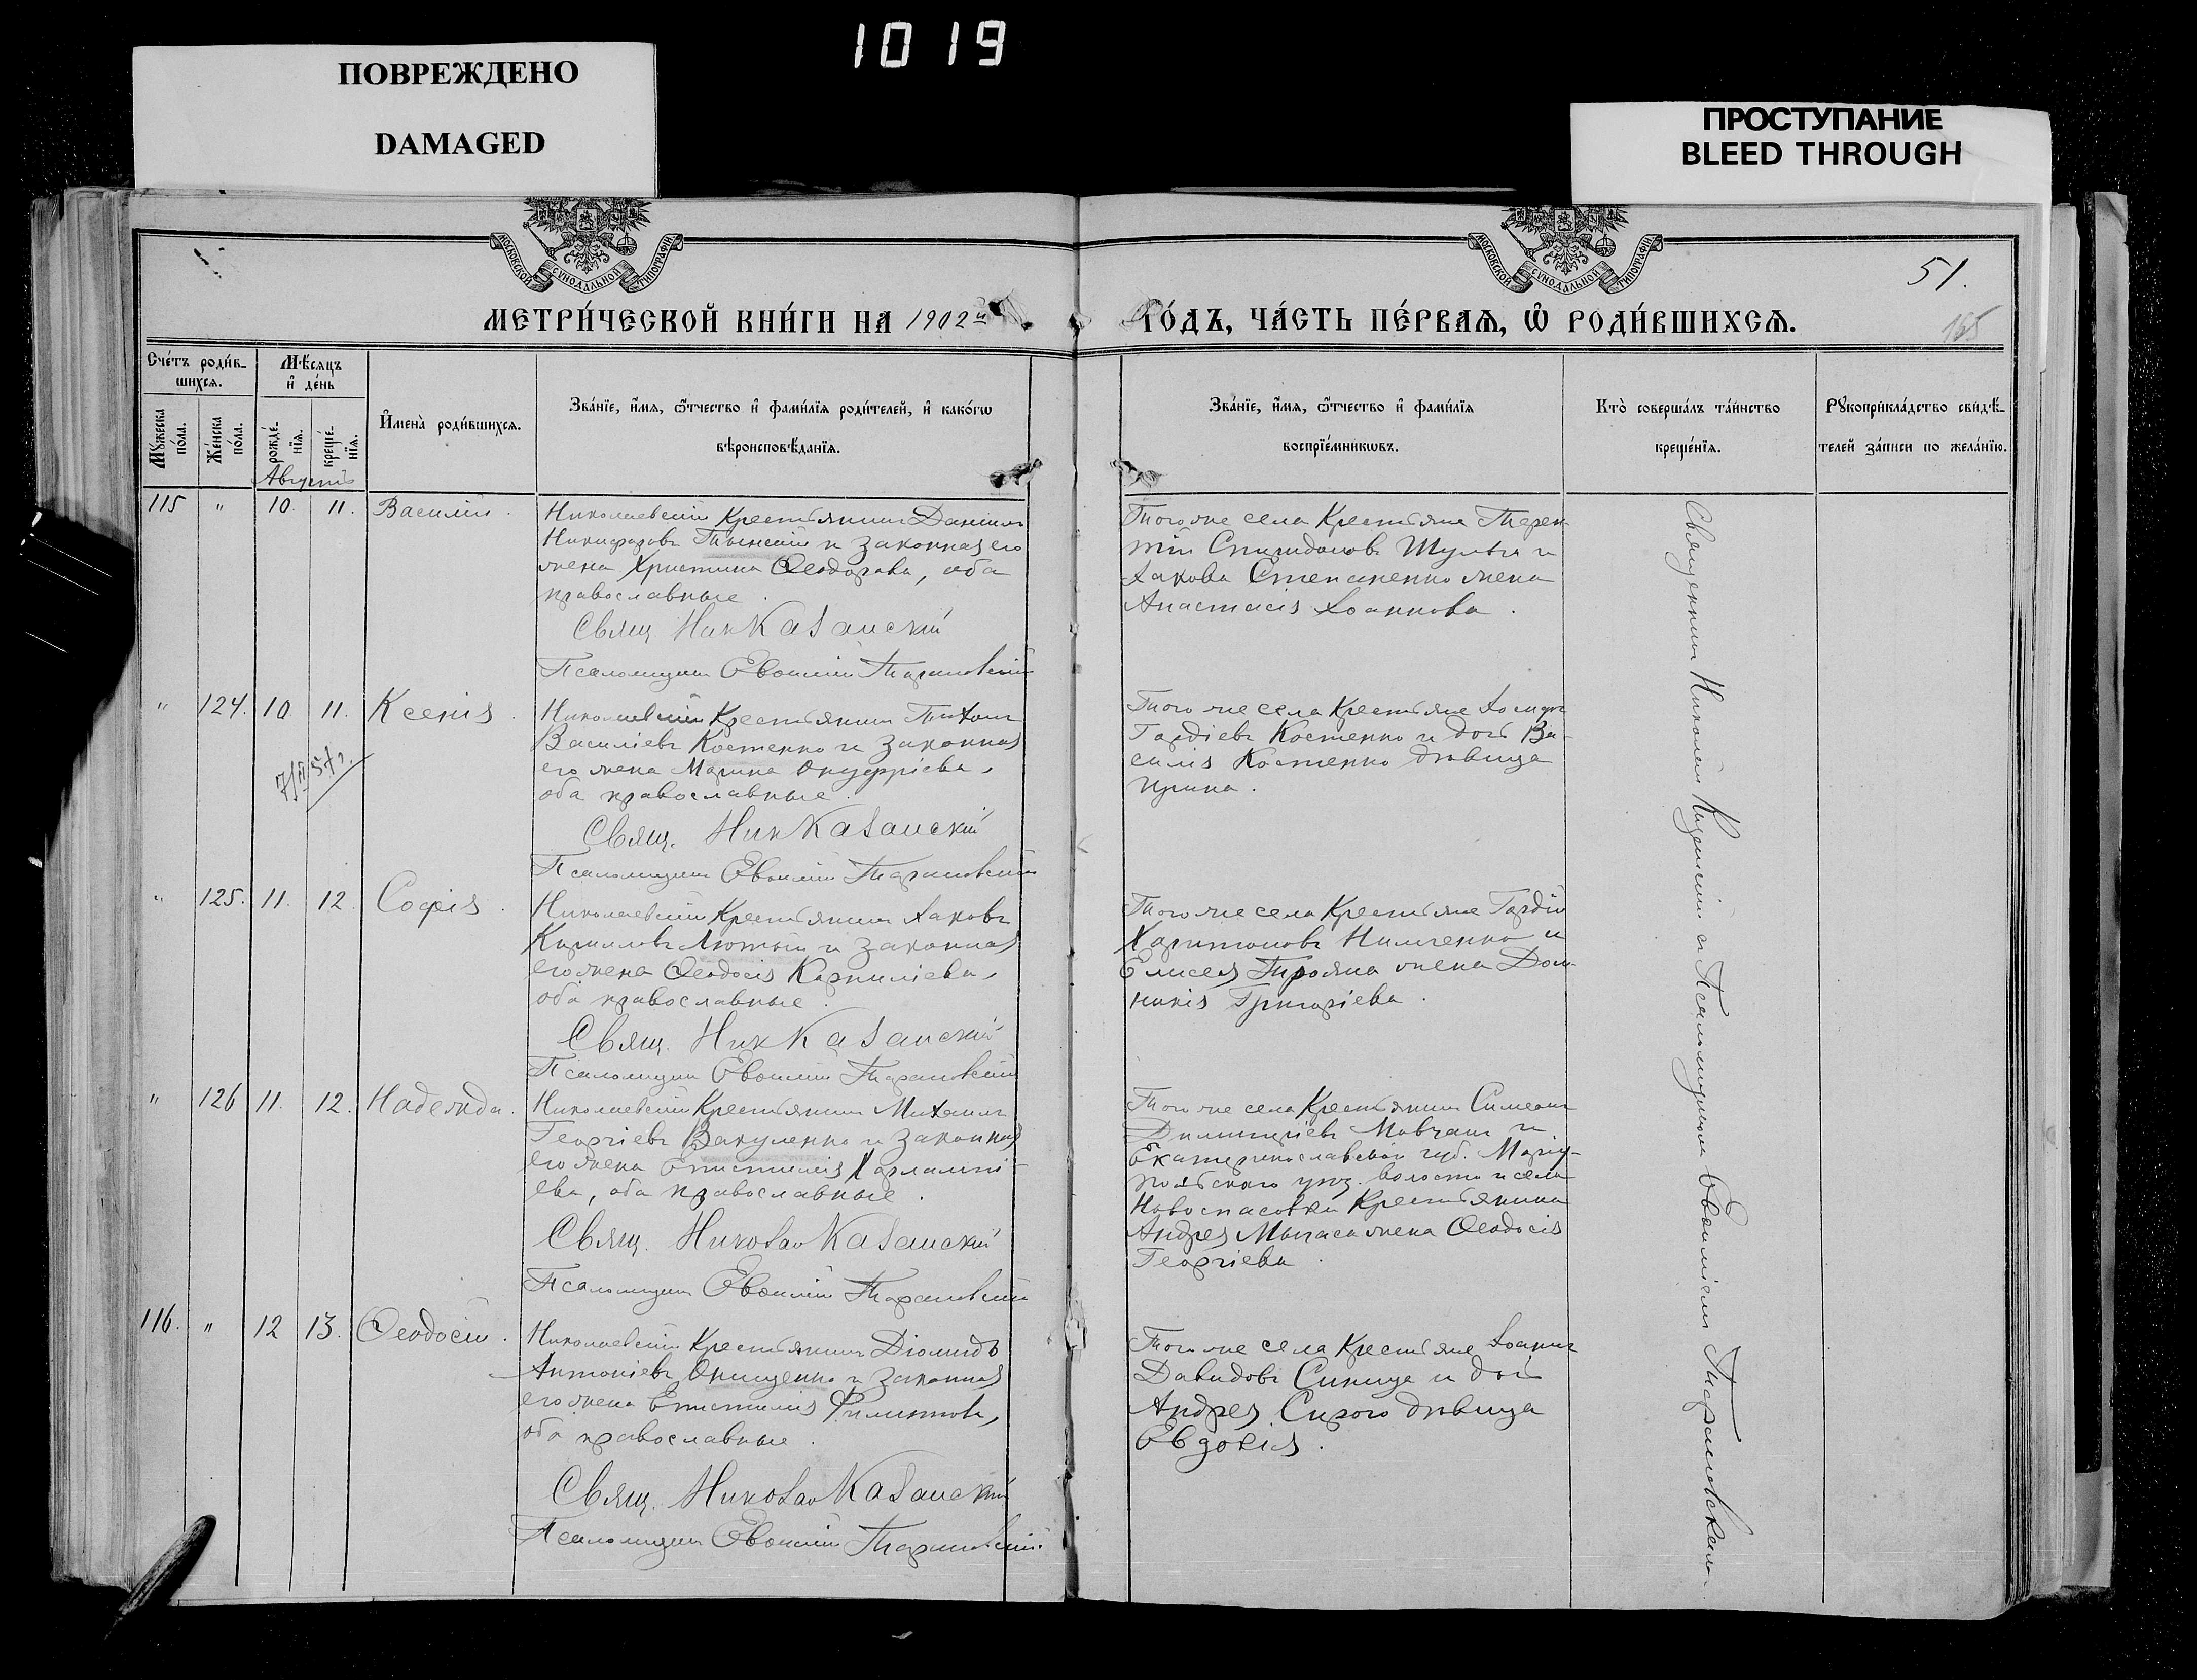 1019
ПОВРЕЖДЕНО
DAMAGED
ПРОСТУПАНИЕ
BLEED THROUGH
МОСКОВСКОЙ СѴНОДАЛЬНОЙ ТИПОГРАФІИ
МОСКОВСКОЙ СѴНОДАЛЬНОЙ ТИПОГРАФІИ
51.
165
МЕТРИ́ЧЕСКОЙ КНИ́ГИ НА 1902й
ГО́ДЪ, ЧА́СТЬ ПЕ́РВАѦ, Ѡ҆ РОДИ́ВШИХСѦ.
Сче́тъ роди́в-
шихсѧ.
Мꙋ́жеска по́ла.
Же́нска по́ла.
Мѣ́сѧцъ
и҆ де́нь
рожде́-
нїѧ.
креще́-
нїѧ.
И҆мена̀ роди́вшихсѧ.
Зва́нїе, и҆́мѧ, ѻ҆́тчество и҆ фами́лїѧ роди́телей, и҆ како́гѡ
вѣроисповѣ́данїѧ.
Зва́нїе, и҆́мѧ, ѻ҆́тчество и҆ фами́лїѧ
воспрїе́мникѡвъ.
Кто̀ соверша́лъ та́инство
креще́нїѧ.
Рꙋкоприкла́дство свидѣ́-
телей за́писи по жела́нїю.
Августъ
115 " 10. 11. Василій.
Николаевскій Крестьянинъ Даніилъ
Никифоровъ и законная его
жена Христина Ѳеодорова, оба
православные.
Свящ Ник Казанскій
Псаломщикъ Евѳимій Тарановскій
Того же села Крестьяне Терен-
тій Спиридоновъ Шульга и
Іакова Степаненко жена
Анастасія Іоаннова.
" 124. 10 11. Ксенія.
Николаевскій Крестьянинъ Тихонъ
Василіевъ Костенко и законная
его жена Марина Онуфріева,
оба православные.
Свящ. Ник Казанскій
Псаломщикъ Евѳимій Тарановскій
Того же села Крестьяне
Гордіевъ Костенко и дочь Ва-
силія Костенко дѣвица
Ирина.
" 125. 11. 12. Софія.
Николаевскій Крестьянинъ Іаковъ
Кирилловъ Лютый и законная
его жена Ѳеодосія Карпиліева,
оба православные.
Свящ. Ник Казанскій
Псаломщикъ Евѳимій Тарановскій
Того же села Крестьяне Гордій
Харитоновъ и
Елисея Трояна жена Дом-
никія Григоріева.
" 126 11. 12. Надежда.
Николаевскій Крестьянинъ Михаилъ
Георгіевъ Вакуленко и законная
его жена Епистимія Харлампі-
ева, оба православные.
Свящ. Николай Казанскій
Псаломщикъ Евѳимій Тарановскій
Того же села Крестьянинъ Симеонъ
Димитріевъ Мовчанъ и
Екатеринославской губ. Маріу-
польскаго уѣз. волости и села
Новоспасовки Крестьянина
Андрея жена Ѳеодосія
Георгіева.
116. " 12 13. Ѳеодосій.
Николаевскій Крестьянинъ Діомидъ
Антоніевъ Онищенко и законная
его жена Епистимія Филиппова,
оба православные.
Свящ. Николай Казанскій
Псаломщикъ Евѳимій Тарановскій.
Того же села Крестьяне Іоаннъ
Давидовъ Синица и дочь
Андрея Сирого дѣвица
Евдокія.
Священникъ Николай Казанскій съ Псаломщикомъ Евѳиміемъ Тарановскимъ.